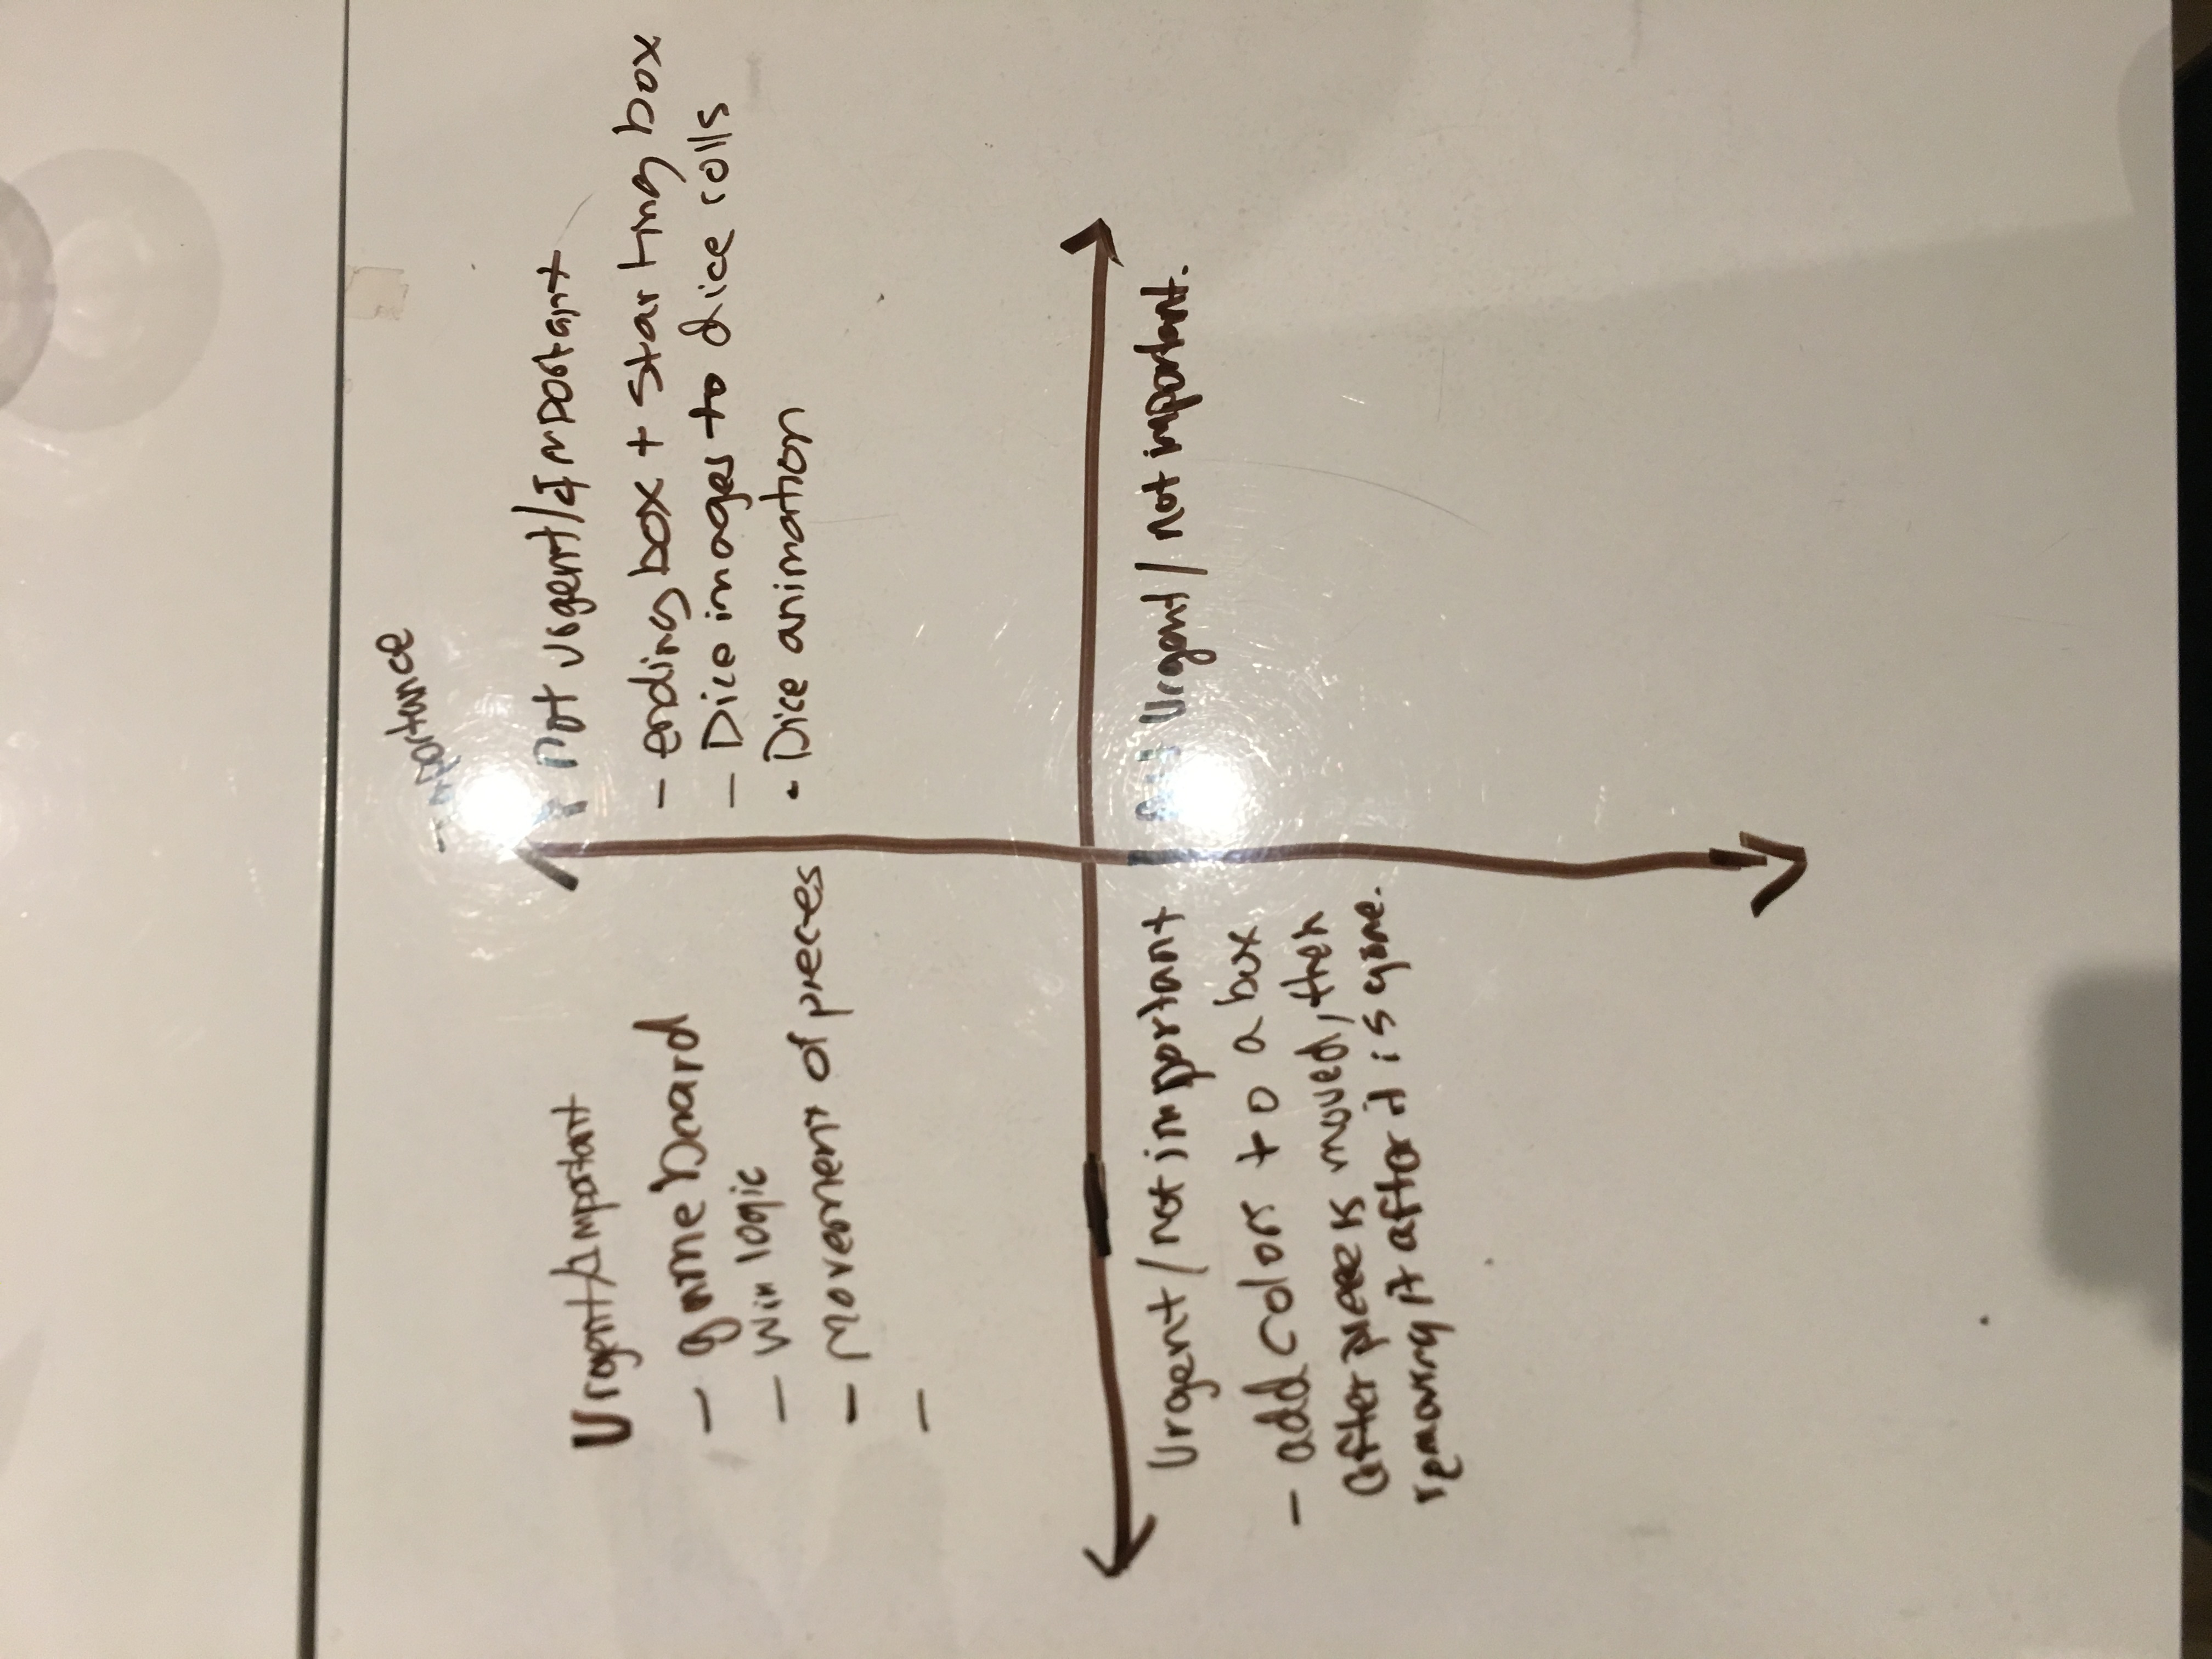 Importance
Urgent/Important
- game board
- Win logic
- Movement of pieces
-
not urgent/Important
- ending box + starting box
- Dice images to dice rolls
- Dice animation
Urgent/not important
- add colors to a box
after piece is moved, then
removing it after it is gone.
Not Urgent/not important.